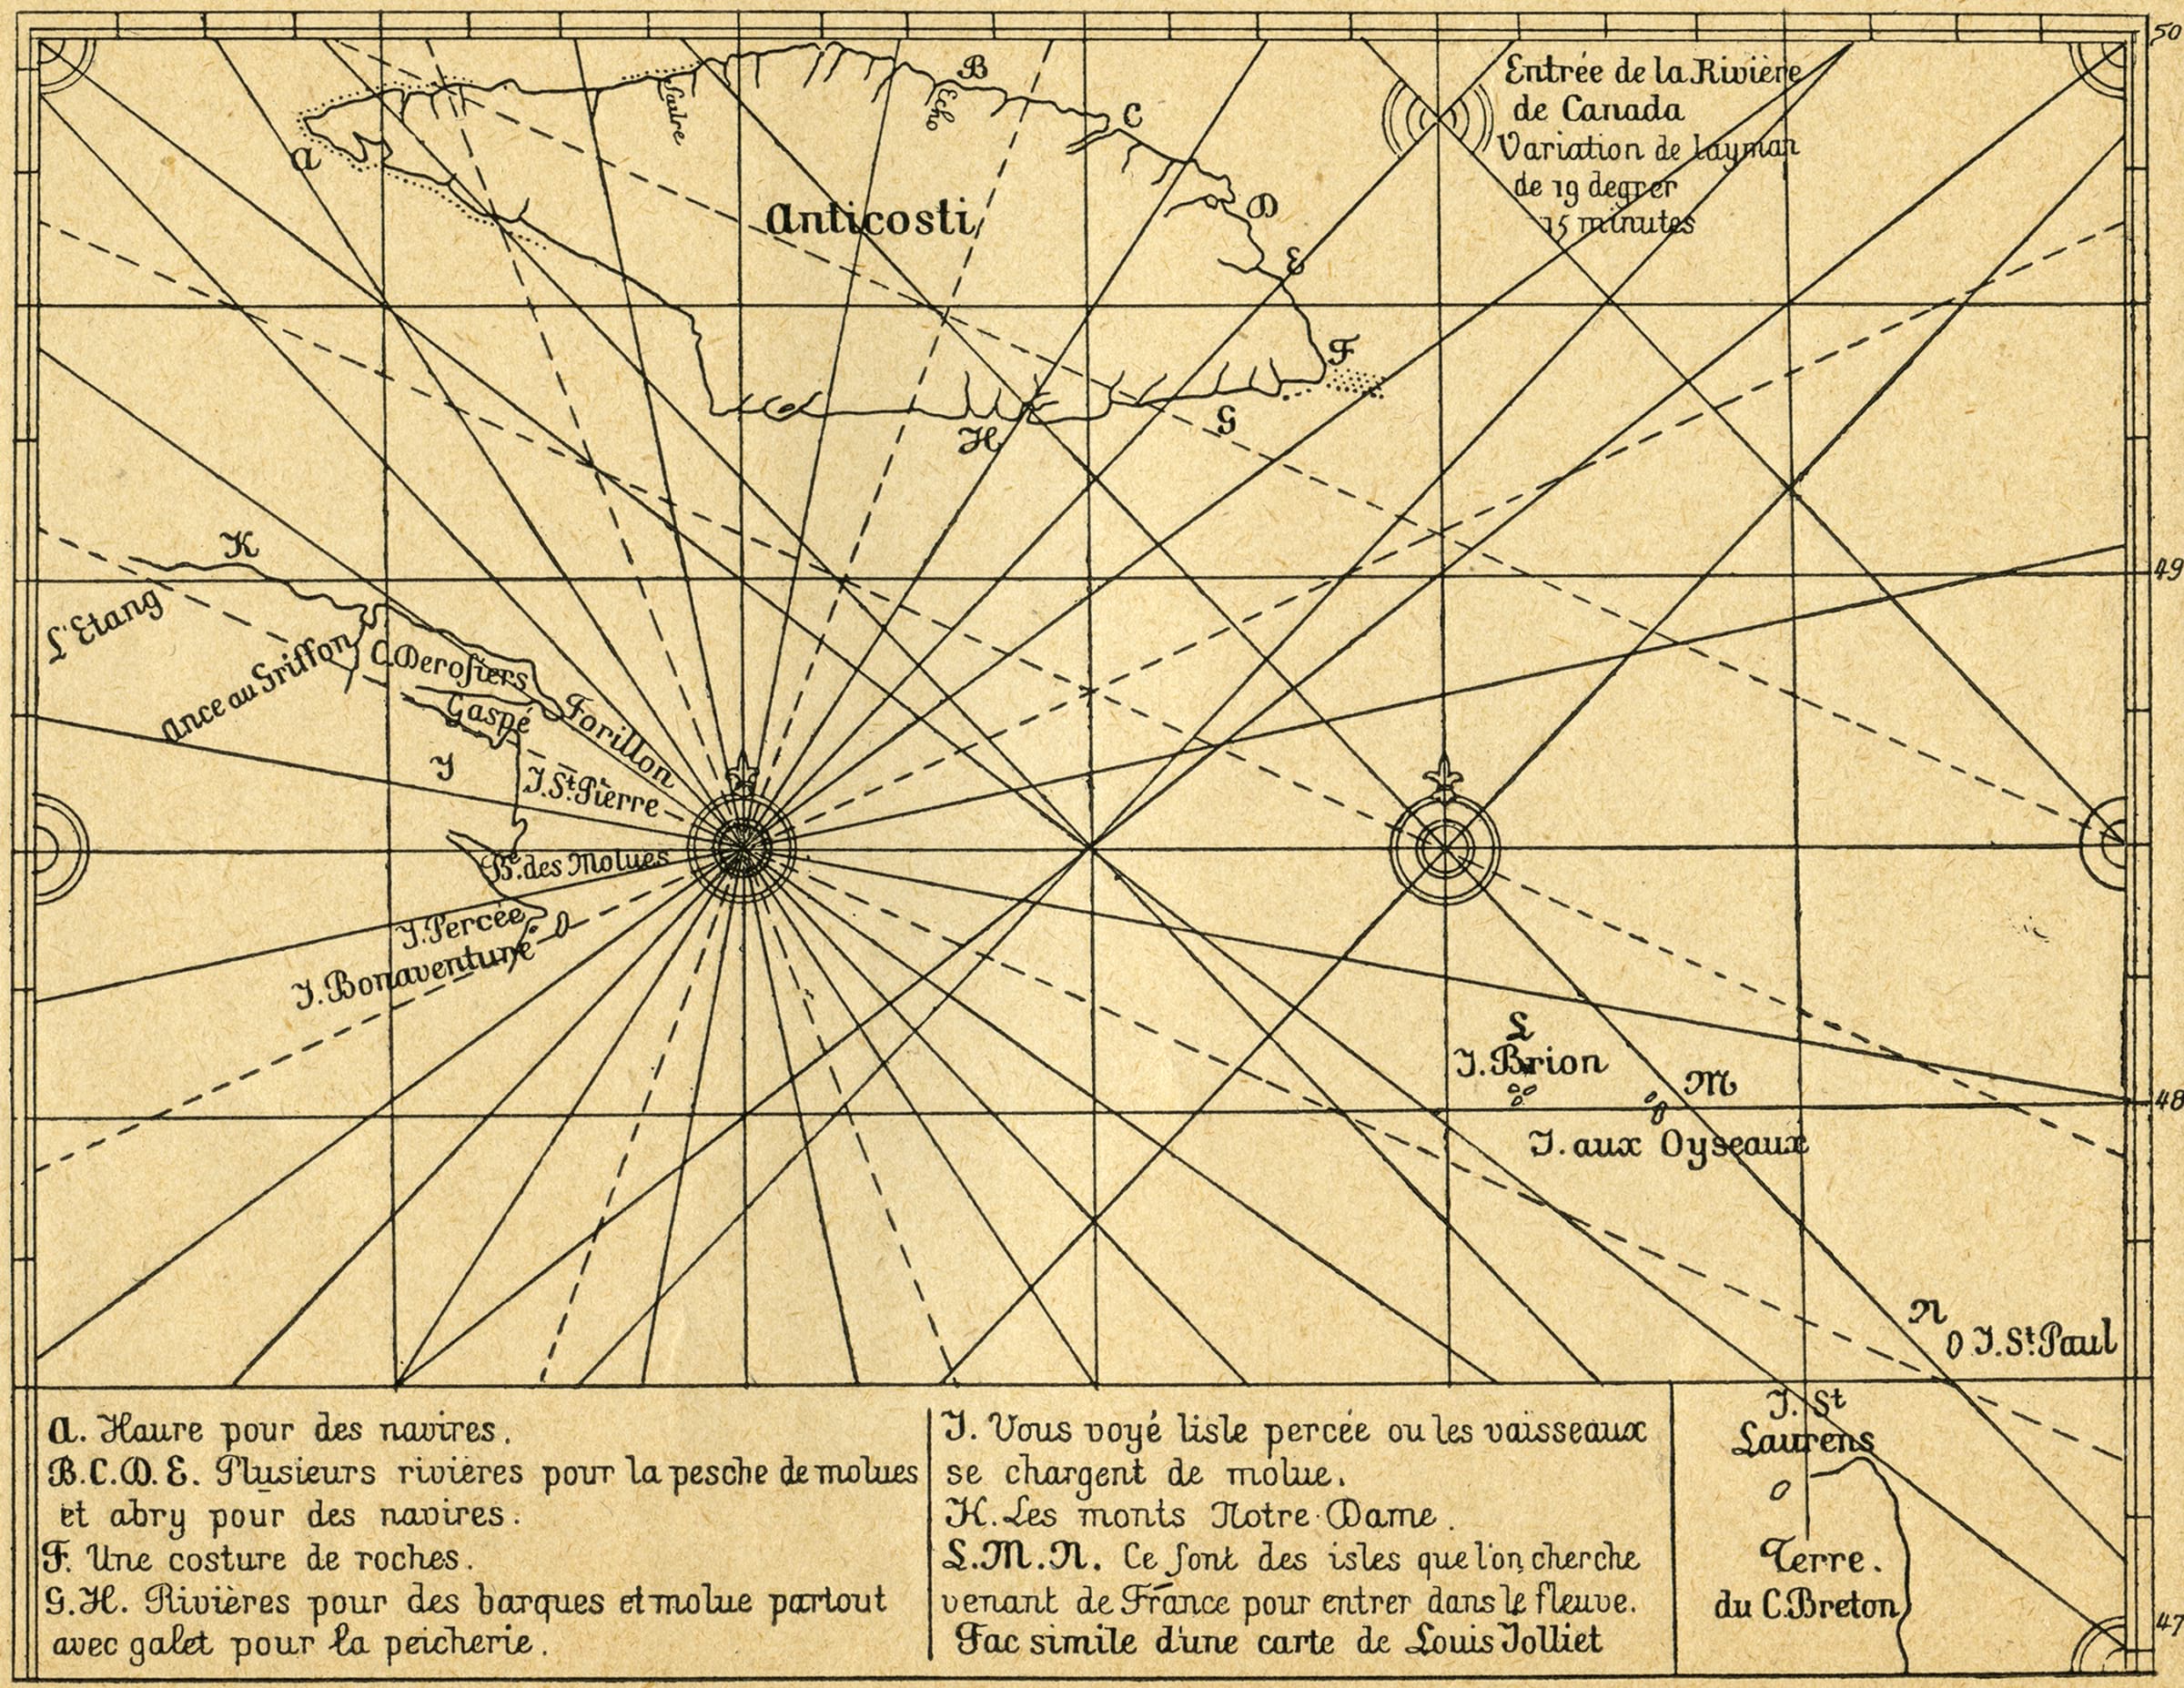 50
Entrée de la Rivière
de Canada
Variation de layman
de 19 degrer
15 minutes
B
Echo
C
a
Anticosti
D
E
F
G
H
K
49
L'Etang
Ance au Griffon
C. Derosiers
Gaspé
Forillon
J
I. St. Pierre
Be. des Molues
I. Percée
I. Bonaventure
L
I. Brion
M
48
I. aux Oyseaux
N
I. St. Paul
A. Haure pour des navires.
B.C.D.E. Plusieurs rivières pour la pesche de molues
et abry pour des navires.
F. Une costure de roches.
G.H. Rivières pour des barques et molue partout
avec galet pour la peicherie.
J. Vous voyé lisle percée ou les vaisseaux
se chargent de molue.
K. Les monts Notre Dame.
L.M.N. Ce sont des isles que l'on cherche
venant de France pour entrer dans le fleuve.
Fac simile d'une carte de Louis Jolliet
I. St
Laurens
Terre.
du C. Breton
47